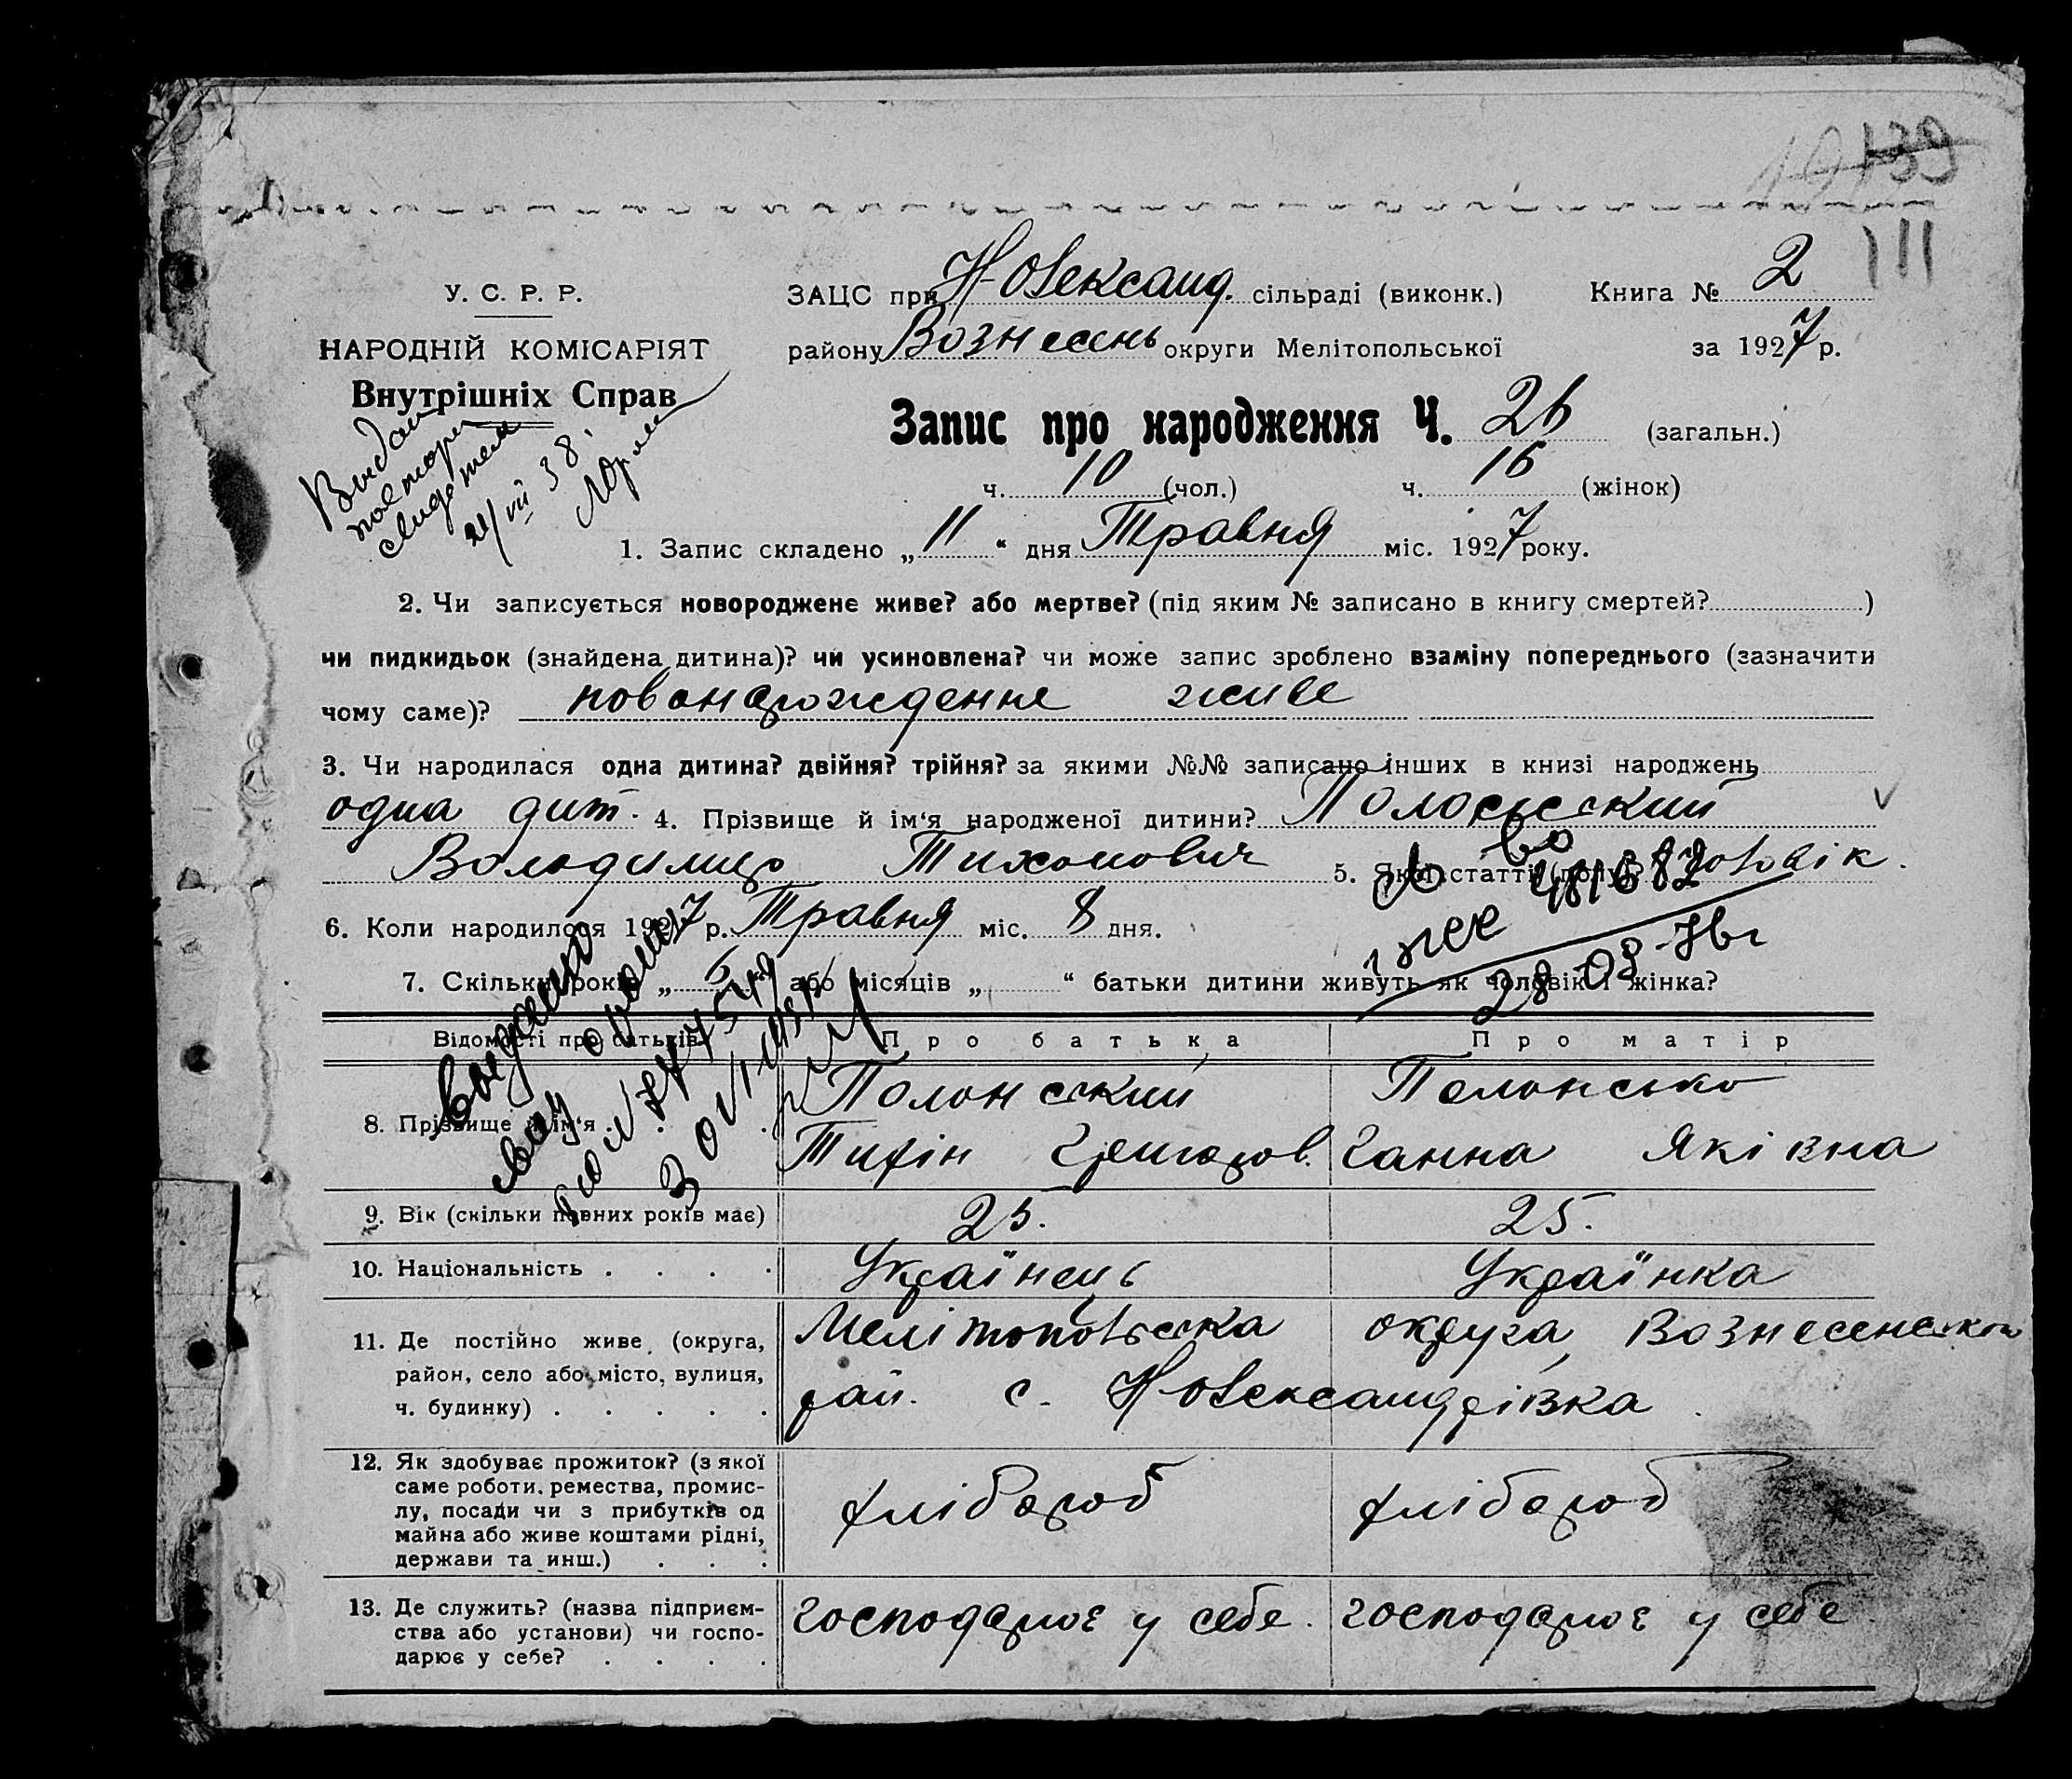 139
111
У. С. Р. Р.
НАРОДНІЙ КОМІСАРІЯТ
Внутрішніх Справ
ЗАЦС при Н-Олександ. сільраді (виконк.) Книга № 2
району Вознесень округи Мелітопольської за 1927 р.
Запис про народження Ч. 26 (загальн.)
ч. 10 (чол.) ч. 16 (жінок)
1. Запис складено „11“ дня Травня міс. 1927 року.
2. Чи записується новороджене живе? або мертве? (під яким № записано в книгу смертей? )
чи пидкидьок (знайдена дитина)? чи усиновлена? чи може запис зроблено взаміну попереднього (зазначити
чому саме)? новонарождення живе
3. Чи народилася одна дитина? двійня? трійня? за якими №№ записано інших в книзі народжень
одна дит. 4. Прізвище й ім‘я народженої дитини? Полонський
Володимир Тихонович 5. Якої статті (полу)? чоловік.
6. Коли народилося 1927 р. Травня міс. 8 дня.
7. Скільки років „6“ або місяців „ “ батьки дитини живуть як чоловік і жінка?
28-08-76г
Відомості про батьків Про батька Про матір
8. Прізвище й ім‘я . Полонський Полонсько
Тихін Григоров. Ганна Яківна
9. Вік (скільки повних років має) 25. 25.
10. Національність . . . . Українець Українка
11. Де постійно живе (округа, Мелітопольська округа, Вознесенсько
район, село або місто, вулиця,
ч. будинку) . . . . . рай. с. Н-Олександрівка
12. Як здобуває прожиток? (з якої
саме роботи, ремества, промис-
лу, посади чи з прибутків од хлібороб хлібороб
майна або живе коштами рідні,
держави та инш.) . . .
13. Де служить? (назва підприєм- господарює у себе. господарює у себе
ства або установи) чи госпо-
дарює у себе? . . . .